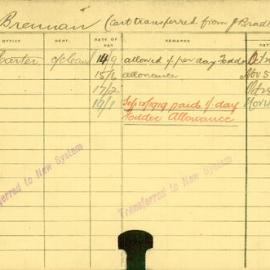 Brennan (Cart transferred from J Brad
OFFICE DEPT. DATE OF PAY REMARKS
Carter of Clean 14/9 allowed / per day Fodder
15/2 allowance Nov 5
17/2
19/1 paid / day Nov
Fodder Allowance
Transferred to New System
Transferred to New System